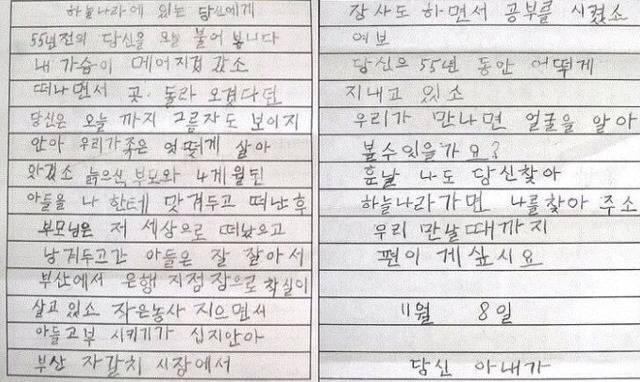 하늘나라에 있는 당신에게
55년전의 당신을 오늘 불어 봅니다
내 가슴이 메어지겁 갔소
떠나면서 곳. 돌라 오겠다던
당신은 오늘 까지 그름자도 보이지
안아 우리가족은 엇떻게 살아
왔겠소 늙으신 부모와 4개월된
아들을 나 한테 맞겨두고 떠난후
부모님은 저 세상으로 떠났으고
남겨두고간 아들은 잘 잘아서
부산에서 은행 지점장으로 착실이
살고 있소 작은농사 지으면서
아들고부 시키기가 십지안아
부산 자갈치 시장에서
잠사도 하면서 공부를 시켰소
여보
당신으 55년 동안 어떻게
지내고 있소
우리가 만나면 얼굴을 알아
볼수있을가요?
훈날 나도 당신찾아
하늘나라가면 나를찾아 주소
우리 만날때까지
편이 게싶시요
11월 8일
당신 아내가